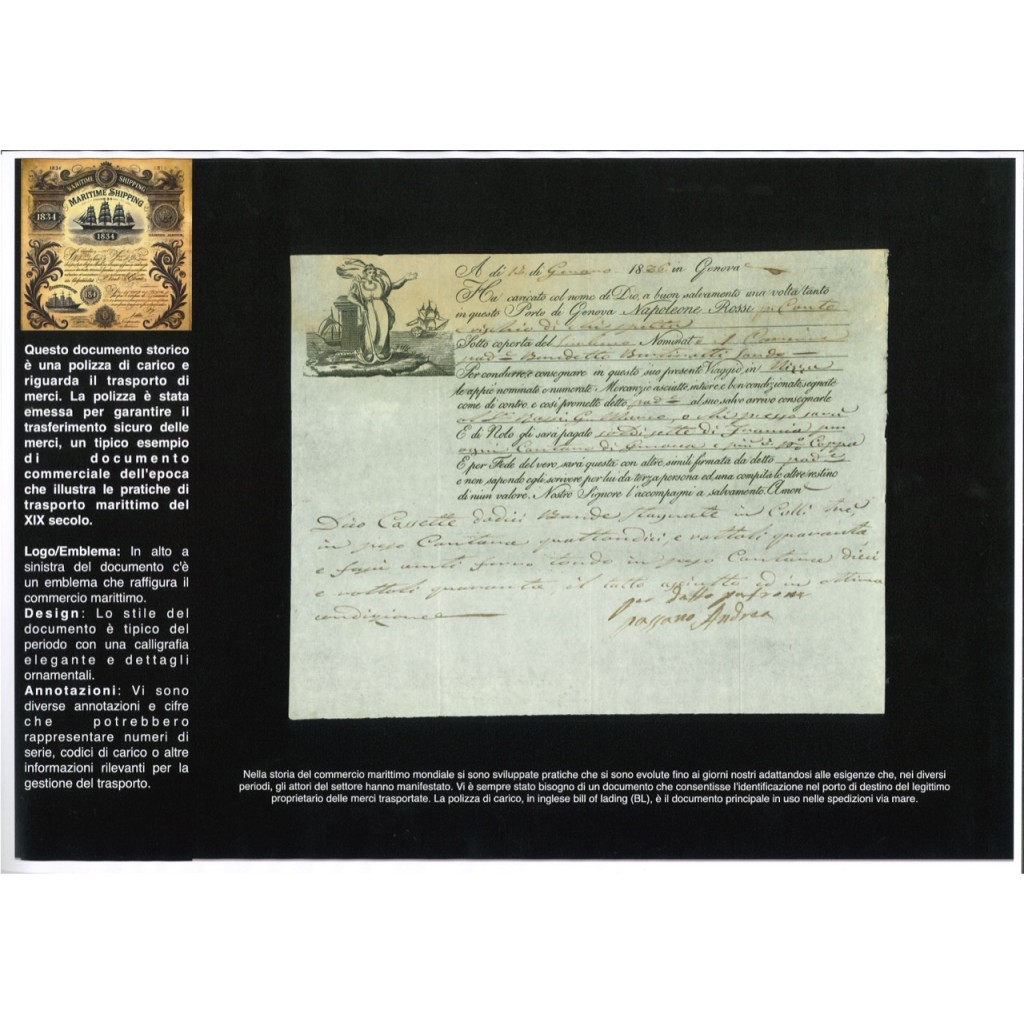 MARITIME SHIPPING
MARITIME SHIPPING
1834
1834
Questo documento storico
è una polizza di carico e
riguarda il trasporto di
merci. La polizza è stata
emessa per garantire il
trasferimento sicuro delle
merci, un tipico esempio
di documento
commerciale dell'epoca
che illustra le pratiche di
trasporto marittimo del
XIX secolo.
Logo/Emblema: In alto a
sinistra del documento c'è
un emblema che raffigura il
commercio marittimo.
Design: Lo stile del
documento è tipico del
periodo con una calligrafia
elegante e dettagli
ornamentali.
Annotazioni: Vi sono
diverse annotazioni e cifre
che potrebbero
rappresentare numeri di
serie, codici di carico o altre
informazioni rilevanti per la
gestione del trasporto.
A dì 12 di Gennaro 1836 in Genova
Ha caricato col nome di Dio, a buon salvamento una volta tanto
in questo Porto di Genova Napoleone Rossi per Conto
Sotto coperta del Nominat
Benedetto
Per condurre, e consegnare in questo suo presente Viaggio, in Nizza
le appiè nominate e numerate Mercanzie asciutte, intiere e ben condizionate, segnate
come di contro, e così promette detto pad.e al suo salvo arrivo consegnarle
o chi per esso sarà
E di Nolo gli sarà pagato soldi sette di Francia per
ogni Cantaro di Genova e più il Cappa
E per Fede del vero, sarà questa con altre simili firmata da detto pad.e
e non sapendo egli scrivere per lui da terza persona ed una compita le altre restino
di niun valore. Nostro Signore l'accompagni a salvamento. Amen
Dico Cassette dodici Bande stagnate in Colli tré
in peso Cantara quattordici e rottoli quaranta
e fasci venti ferro tondo in peso Cantara dieci
e rottoli quaranta, il tutto asciutto ed in ottima
condizione
per detto padrone
passano Andrea
Nella storia del commercio marittimo mondiale si sono sviluppate pratiche che si sono evolute fino ai giorni nostri adattandosi alle esigenze che, nei diversi
periodi, gli attori del settore hanno manifestato. Vi è sempre stato bisogno di un documento che consentisse l'identificazione nel porto di destino del legittimo
proprietario delle merci trasportate. La polizza di carico, in inglese bill of lading (BL), è il documento principale in uso nelle spedizioni via mare.